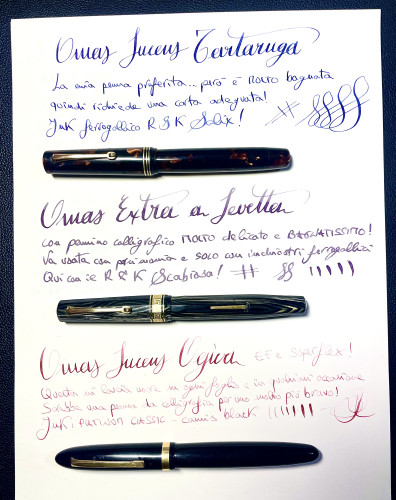 Omas Lucens Tartaruga
La mia penna preferita... però è molto bagnata
quindi richiede una carta adeguata!
Ink ferrogallico R & K Salix!
Omas Extra a Levetta
con pennino calligrafico molto delicato e BAGNATISSIMO!
Va usata con parsimonia e solo con inchiostri ferrogallici
Qui con ie R & K Scabiosa!
Omas Lucens Ogiva EF e Superflex!
Questa mi lascia
Sarebbe una penna da calligrafia per uno molto più bravo!
Ink: PLATINUM CLASSIC - cassis black